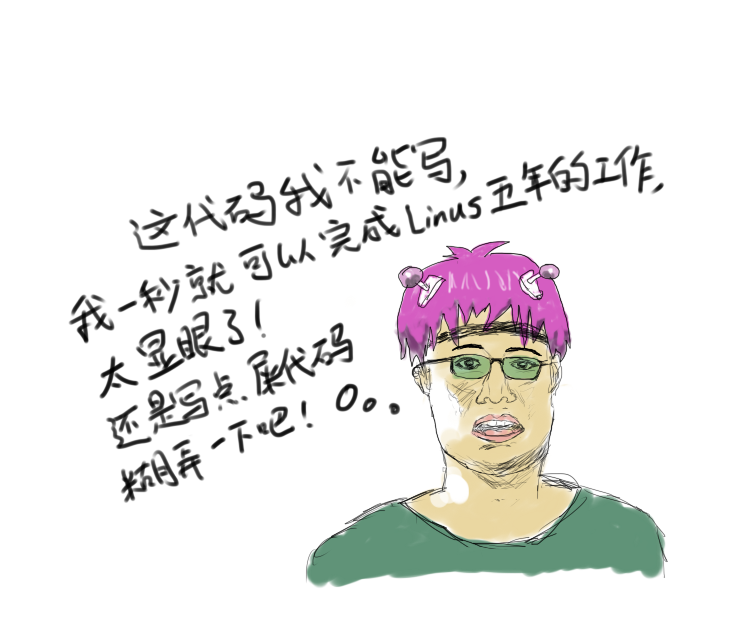 这代码我不能写,
我一秒就可以完成Linus五年的工作,
太显眼了!
还是写点屎代码
糊弄一下吧!